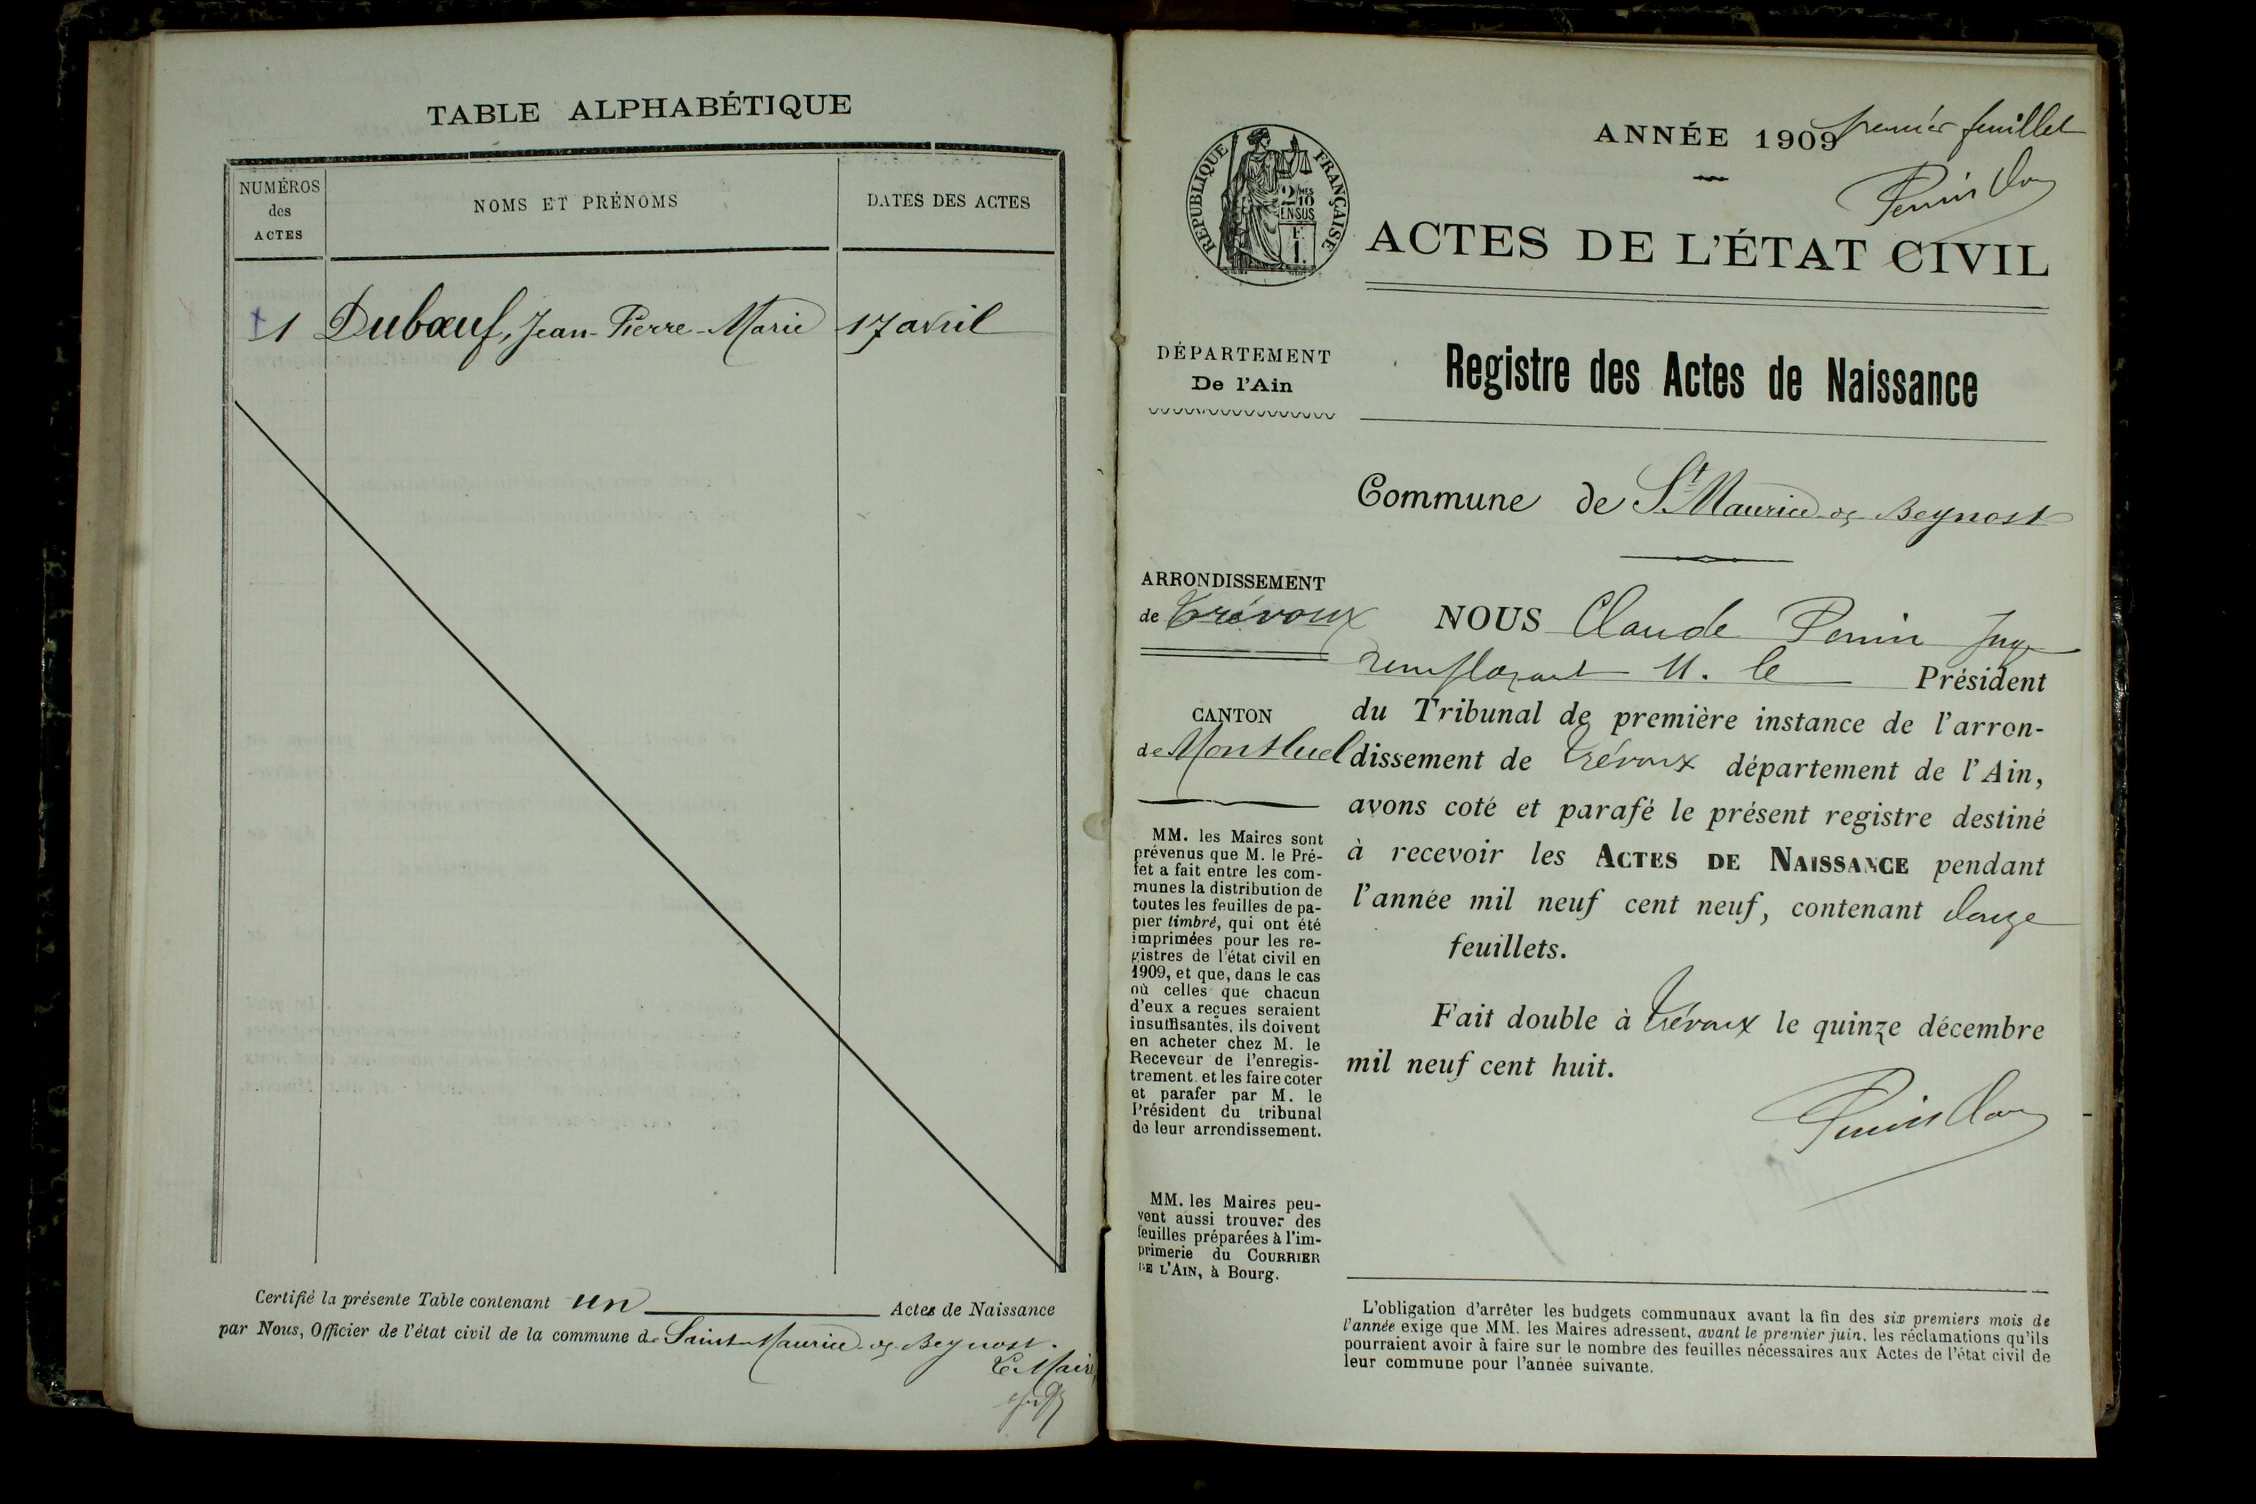 TABLE ALPHABÉTIQUE
NUMÉROS
des
ACTES
NOMS ET PRÉNOMS
DATES DES ACTES
1 Dubœuf, Jean-Pierre-Marie 17 avril
Certifié la présente Table contenant un Actes de Naissance
par Nous, Officier de l'état civil de la commune de Saint-Maurice-de-Beynost.
Le Maire,
ANNÉE 1909
premier feuillet
RÉPUBLIQUE FRANÇAISE
2/10MES
EN SUS
F.
1.
ACTES DE L'ÉTAT CIVIL
DÉPARTEMENT
De l'Ain
Registre des Actes de Naissance
Commune de St Maurice-de-Beynost
ARRONDISSEMENT
de Trévoux
CANTON
de Montluel
MM. les Maires sont
prévenus que M. le Pré-
fet a fait entre les com-
munes la distribution de
toutes les feuilles de pa-
pier timbré, qui ont été
imprimées pour les re-
gistres de l'état civil en
1909, et que, dans le cas
où celles que chacun
d'eux a reçues seraient
insuffisantes, ils doivent
en acheter chez M. le
Receveur de l'enregis-
trement et les faire coter
et parafer par M. le
Président du tribunal
de leur arrondissement.
MM. les Maires peu-
vent aussi trouver des
feuilles préparées à l'im-
primerie du COURRIER
DE L'AIN, à Bourg.
NOUS Claude Perrin Juge
remplaçant M. le Président
du Tribunal de première instance de l'arron-
dissement de Trévoux département de l'Ain,
avons coté et parafé le présent registre destiné
à recevoir les ACTES DE NAISSANCE pendant
l'année mil neuf cent neuf, contenant douze
feuillets.
Fait double à Trévoux le quinze décembre
mil neuf cent huit.
L'obligation d'arrêter les budgets communaux avant la fin des six premiers mois de
l'année exige que MM. les Maires adressent, avant le premier juin, les réclamations qu'ils
pourraient avoir à faire sur le nombre des feuilles nécessaires aux Actes de l'état civil de
leur commune pour l'année suivante.